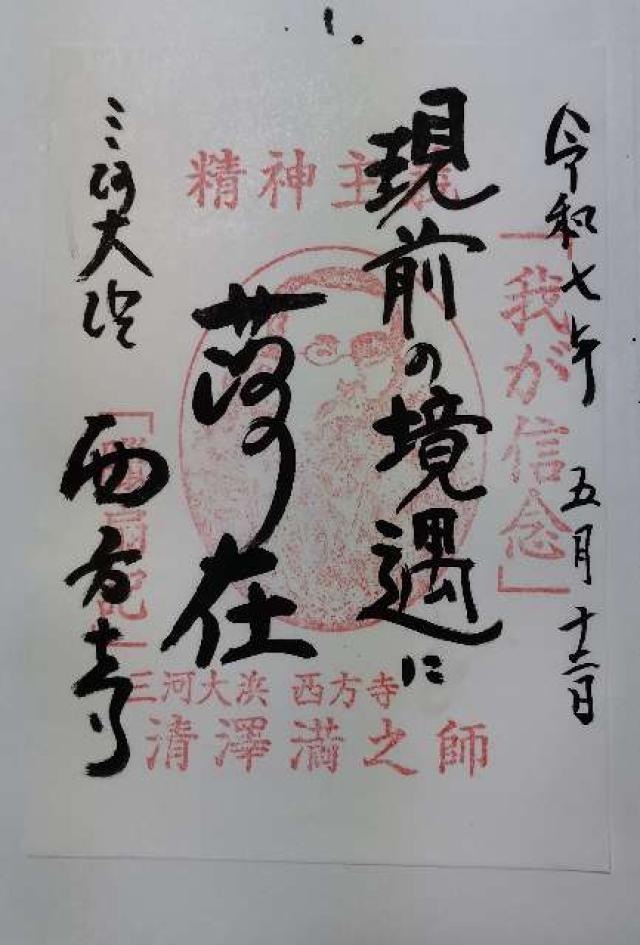 令和七年 五月十二日
現前の境遇に
落在
三河大浜 西方寺
精神主義
「我が信念」
「臘扇記」
三河大浜 西方寺
清澤満之師